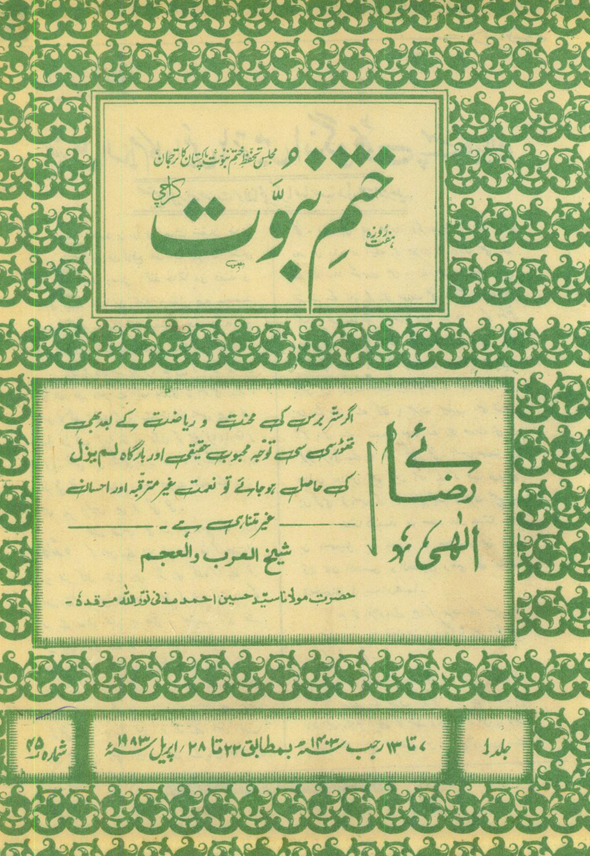 مجلس تحفظ ختم نبوت پاکستان کا ترجمان
ہفت روزہ
ختمِ نبوَّت
کراچی
رضائے
الٰہی ہو
اگر ستر برس کی محنت و ریاضت کے بعد بھی
تھوڑی سی توجہ محبوب حقیقی اور بارگاہ لم یزل
کی حاصل ہو جائے تو نعمت غیر مترقبہ اور احسان
غیر متناہی ہے ۔
شیخ العرب والعجم
حضرت مولانا سید حسین احمد مدنی نور اللہ مرقدہٗ ۔
جلد ۱
۷ تا ۱۳ رجب ۱۴۰۳ھ بمطابق ۲۲ تا ۲۸ / اپریل ۱۹۸۳ء
شمارہ ۴۵